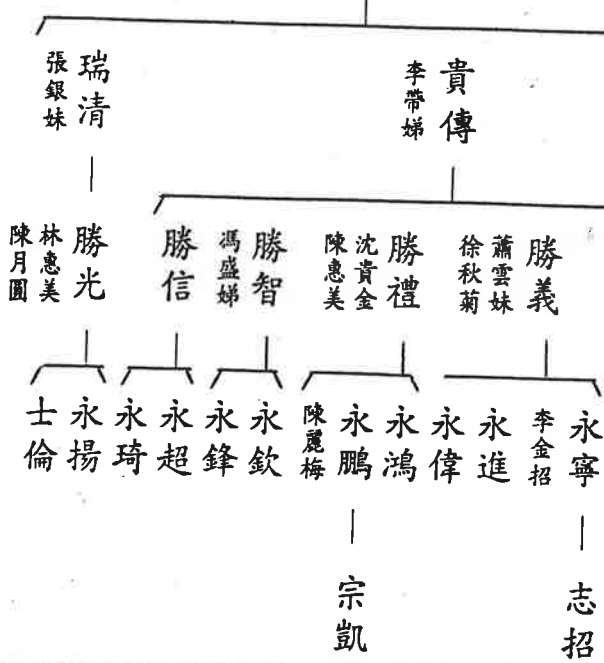 貴傳
李帶娣
瑞清
張銀妹
勝義
蕭雲妹
徐秋菊
勝禮
沈貴金
陳惠美
勝智
馮盛娣
勝信
勝光
林惠美
陳月圓
永寧
李金招
永進
永偉
永鴻
永鵬
陳麗梅
永欽
永鋒
永超
永琦
永揚
士倫
志招
宗凱